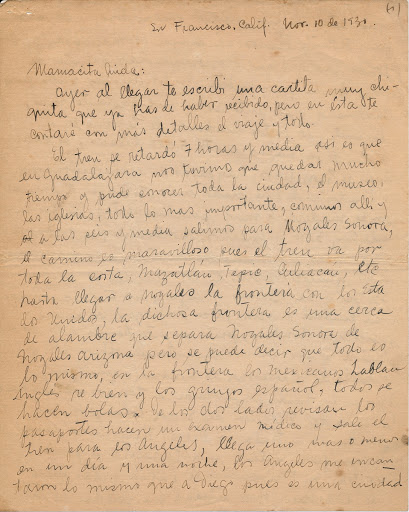 (1)
Sn Francisco, Calif. Nov. 10 de 1930.
Mamacita linda:
Ayer al llegar te escribí una cartita muy chi-
quita que ya has de haber recibido, pero en ésta te
contaré con más detalles el viaje y todo.
El tren se retardó 7 horas y media así es que
en Guadalajara nos tuvimos que quedar mucho
tiempo y pude conocer toda la ciudad, el museo,
las iglesias, todo lo mas importante, comimos allí y
a las seis y media salimos para Nogales Sonora,
el camino es maravilloso pues el tren va por
toda la costa, Mazatlán, Tepic, Culiacan, etc
hasta llegar a nogales la frontera con los Esta
dos Unidos, la dichosa frontera es una cerca
de alambre que separa Nogales Sonora de
Nogales Arizona pero se puede decir que todo es
lo mismo, en la frontera los mexicanos hablan
inglés re bien y los gringos español, todos se
hacen bolas. De los dos lados revisan los
pasaportes hacen un examen médico y sale el
tren para los Angeles, llega uno mas o menos
en un día y una noche, los Angeles me encan
taron lo mismo que a Diego pues es una ciudad